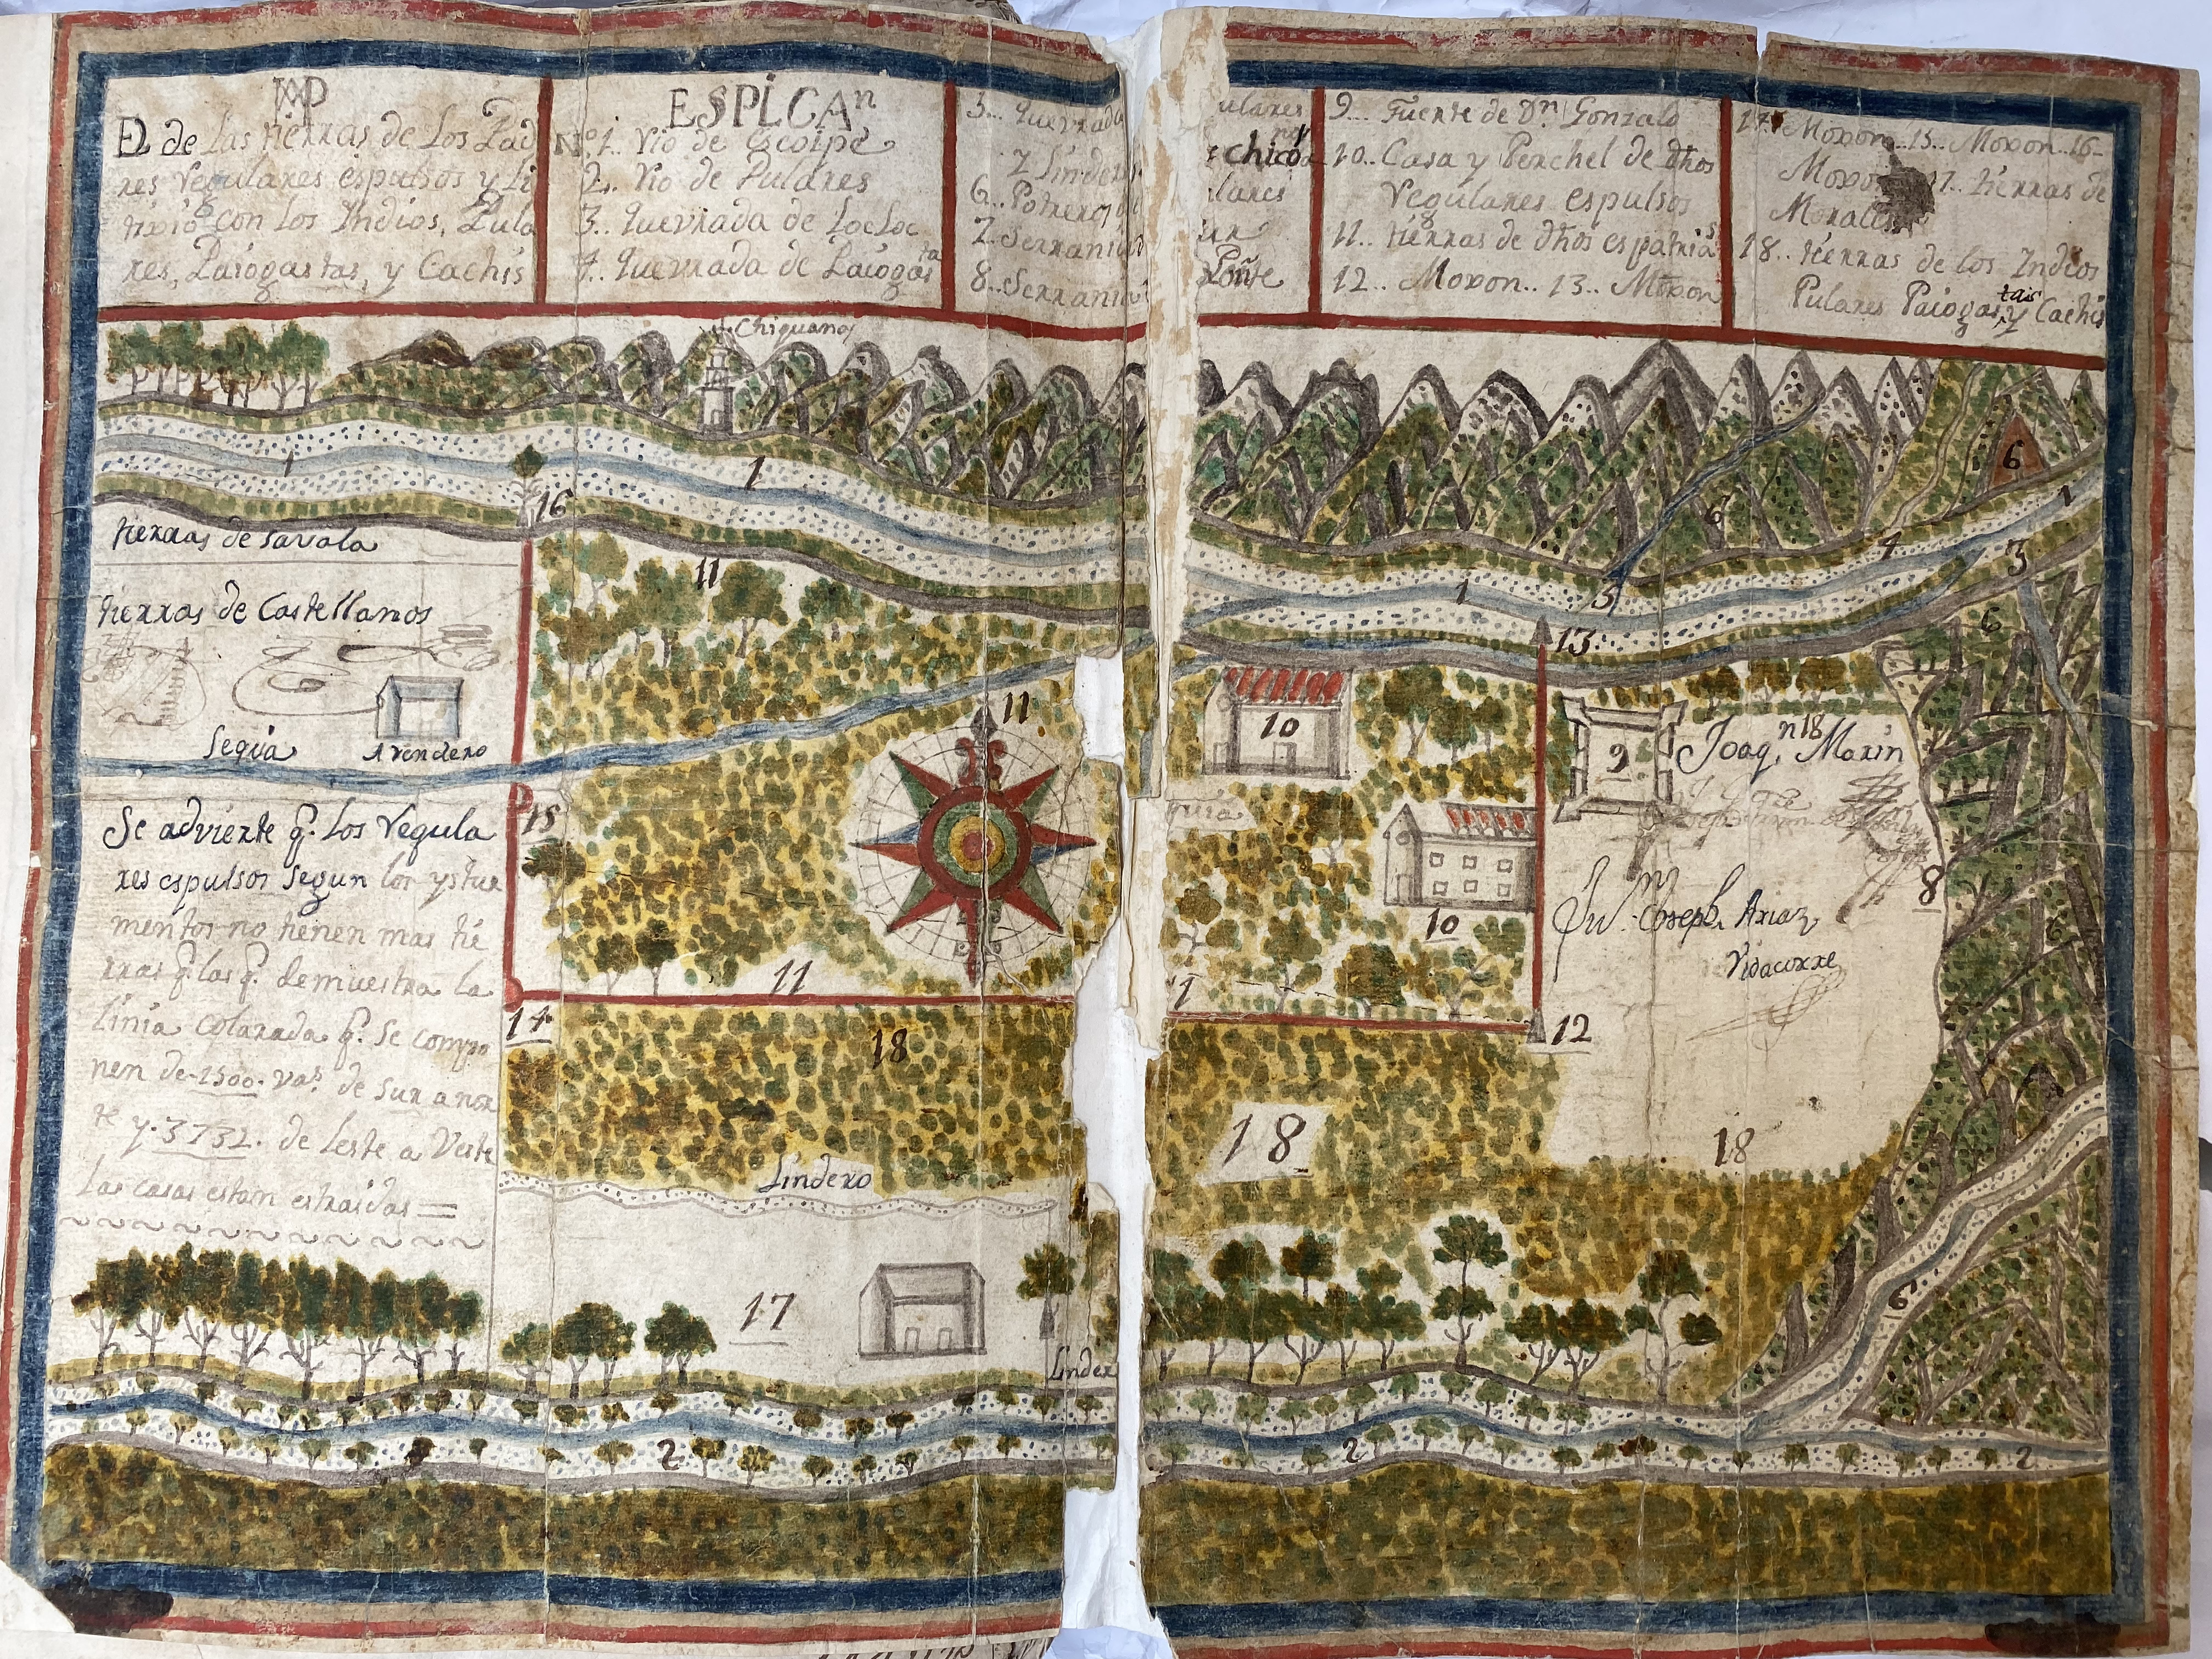 MAP
El de las tierras de los Pad
res regulares espulsos y li
tixio con los Indios, Pula
res, Paiogastas, y Cachis
ESPLCAn
No.1.. rio de escoipe
2.. rio de Pulares
3.. quevrada de Locloc
4.. quevrada de Paiogasta
5... quevrada
y linder
6.. Potrero
7.. Serrania
8.. Serrania
ulares
chico
lares
9... Fuerte de Dn. Gonzalo
10.. Casa y Perchel de dhos
regulares espulsos
11.. tierras de dhos espatrias
12.. Moxon.. 13.. Moxon
14.. Moxon..15.. Moxon..16-
Moxon 17.. tierras de
Morales
18.. tierras de los Indios
Pulares Paiogastas y Cachis
Chiguanos
1
1
16
1
5
4
3
1
6
6
6
tierras de Savala
11
tierras de Castellanos
13:
11
10
9
Joaqn. Maxin
18
Sequia
Avendero
15
Se advierte q. los regula
res espulsos segun los ystru
mentos no tienen mas tie
rras q. las q. demuestra la
linia colarada q. se compo
nen de-1500. vas. de sur a nor
te y.3732. de leste a Veste
Las casas estan estraidas =
quia
10
8
6
Joseph Ariaz
Vidaurre
11
1
14
12
18
18
18
Lindero
17
Linder
6
2
2
2